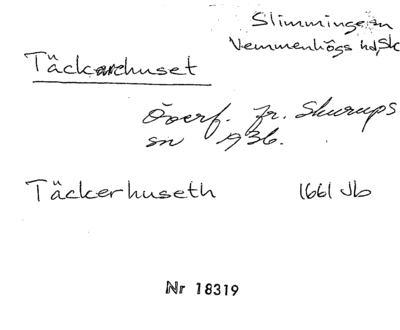 Slimminge sn
Vemmenhögs hd, Sk
Täckarehuset
Överf. fr. Skurups
sn 1936.
Täckerhuseth 1661 Jb
Nr 18319